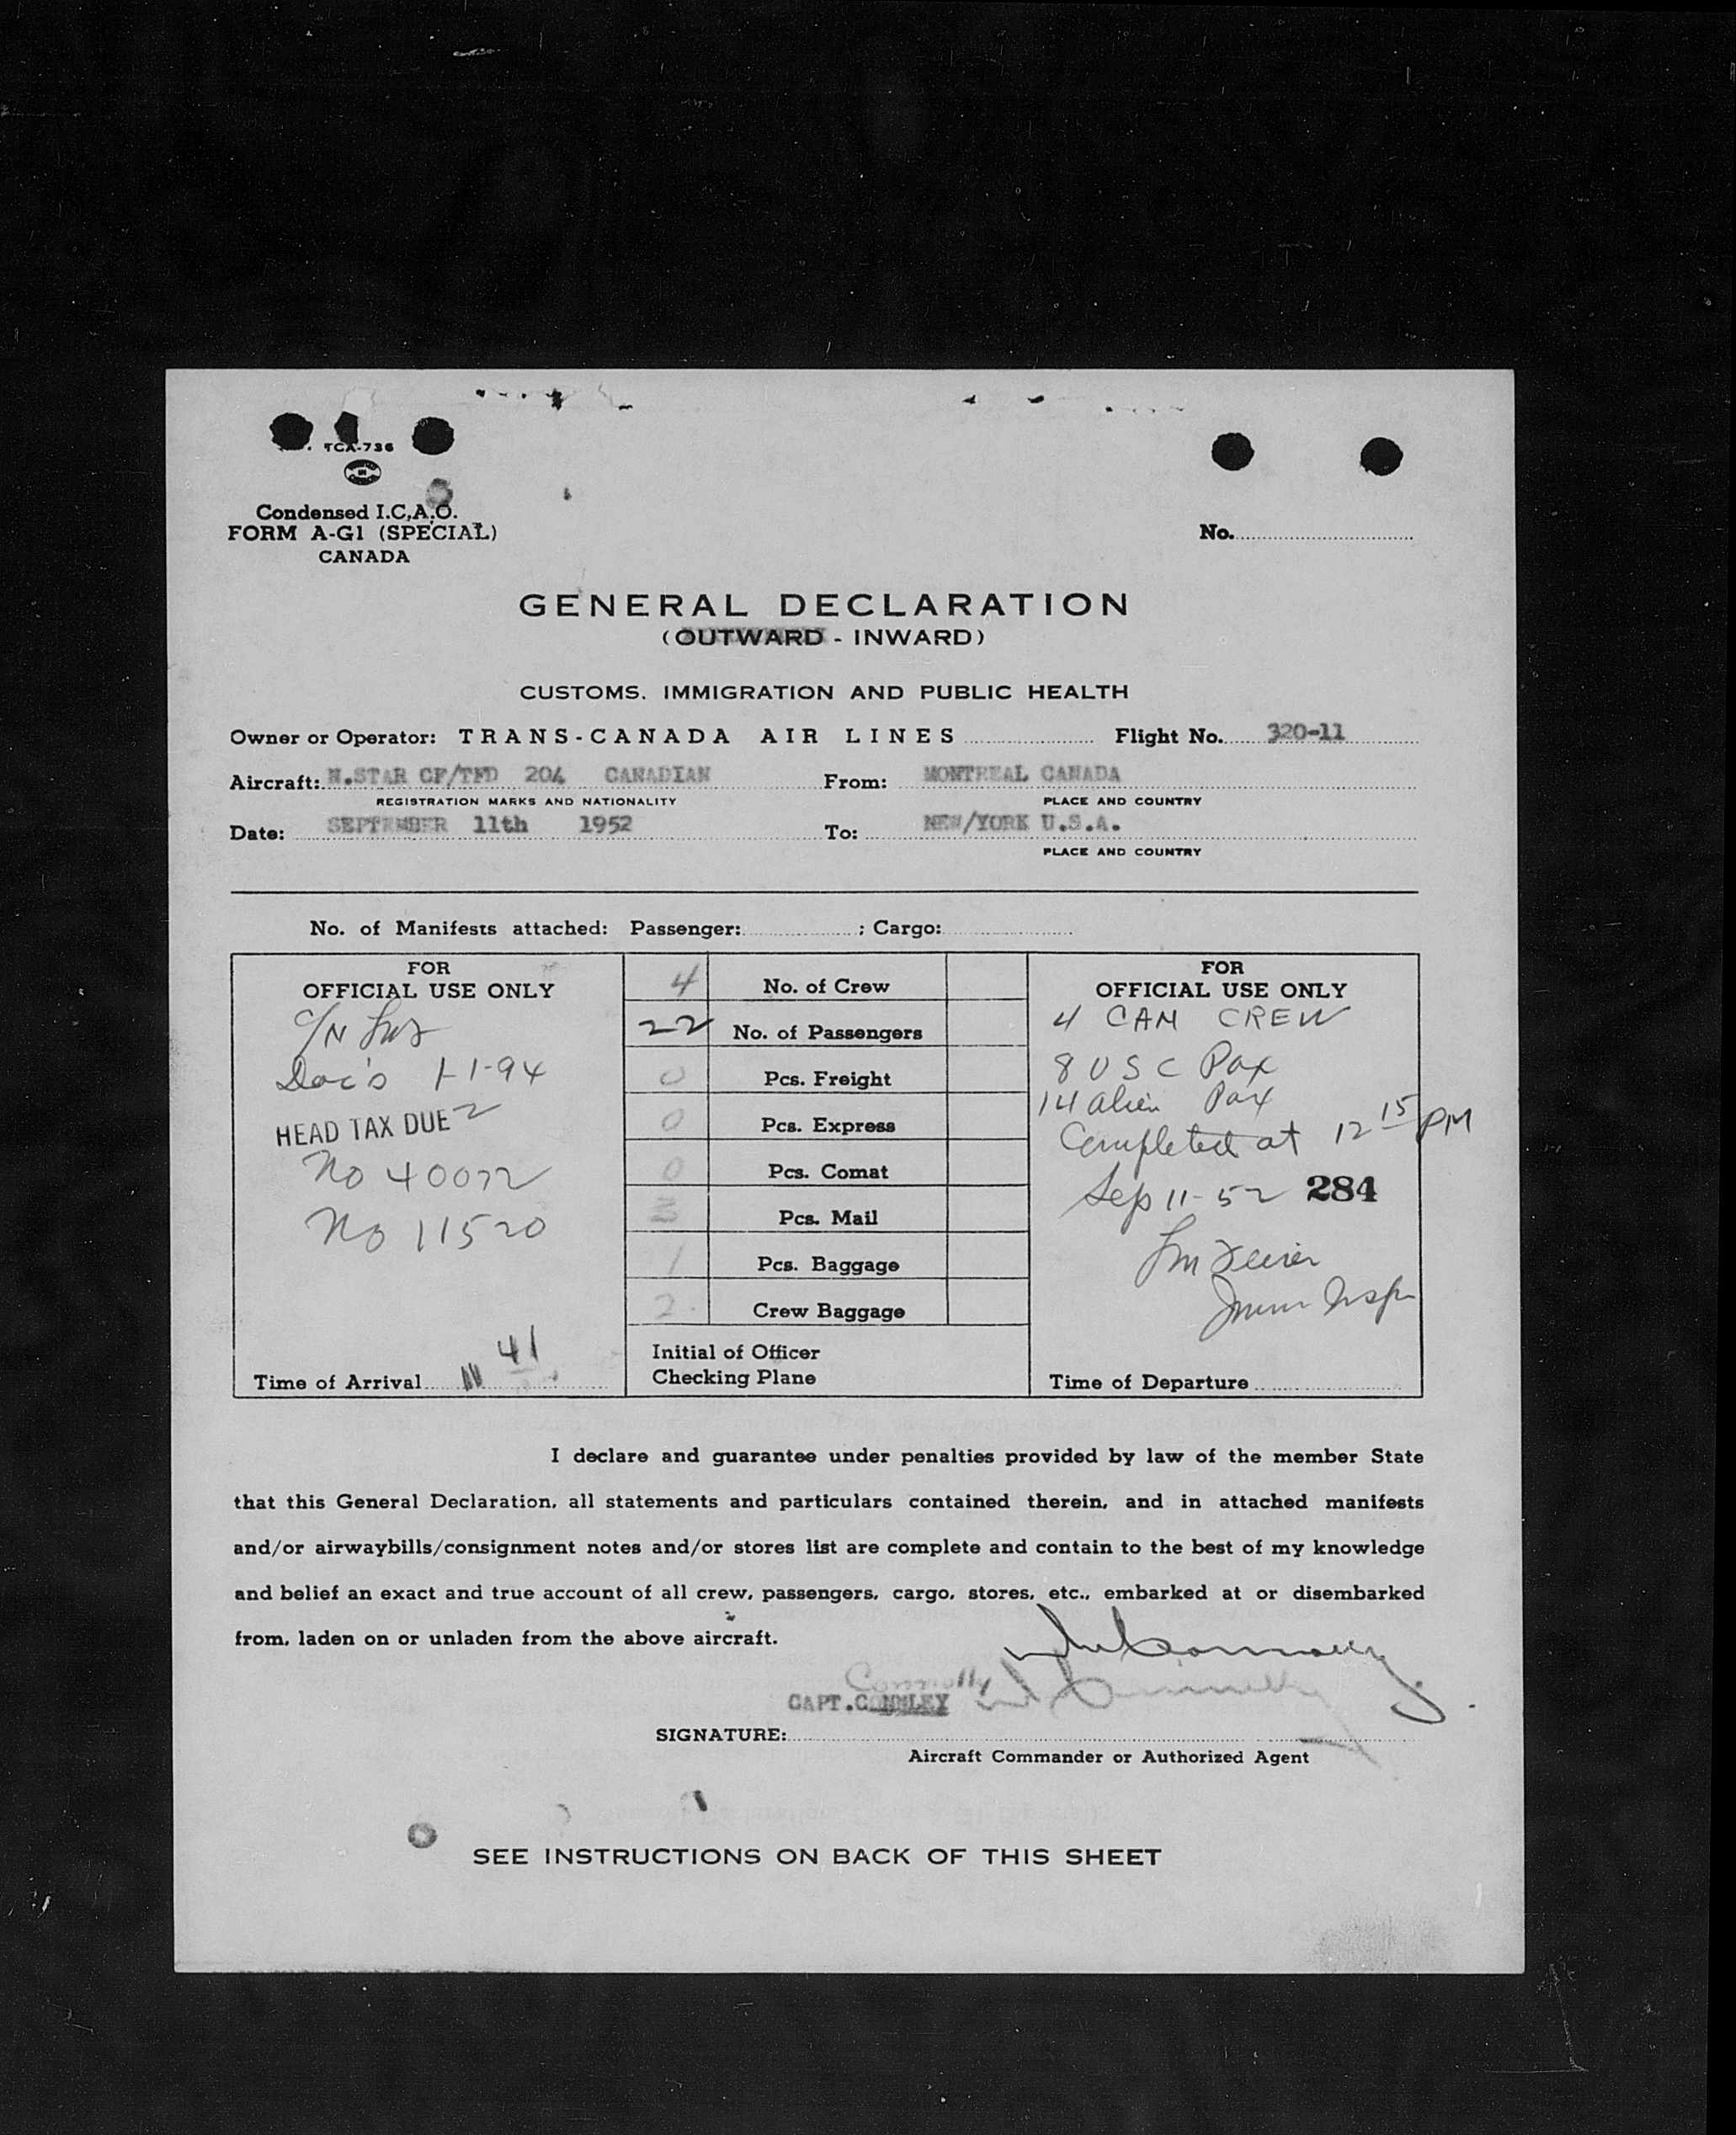 TCA-736
Condensed I.C.A.O.
FORM A-G1 (SPECIAL)
CANADA
No.
GENERAL DECLARATION
(OUTWARD - INWARD)
CUSTOMS, IMMIGRATION AND PUBLIC HEALTH
Owner or Operator: TRANS-CANADA AIR LINES Flight No. 320-11
Aircraft: N.STAR CF/TFD 204 CANADIAN From: MONTREAL CANADA
REGISTRATION MARKS AND NATIONALITY PLACE AND COUNTRY
Date: SEPTEMBER 11th 1952 To: NEW/YORK U.S.A.
PLACE AND COUNTRY
No. of Manifests attached: Passenger: ; Cargo:
FOR
OFFICIAL USE ONLY
Doc's 1-1-94
HEAD TAX DUE 2
No 40072
No 11520
Time of Arrival 11 41
4 No. of Crew
22 No. of Passengers
0 Pcs. Freight
0 Pcs. Express
0 Pcs. Comat
3 Pcs. Mail
1 Pcs. Baggage
2 Crew Baggage
Initial of Officer
Checking Plane
FOR
OFFICIAL USE ONLY
4 CAN CREW
8 USC Pax
14 alien Pax
Completed at 12 15 PM
Sep 11-52 284
Imm Insp
Time of Departure
I declare and guarantee under penalties provided by law of the member State
that this General Declaration, all statements and particulars contained therein, and in attached manifests
and/or airwaybills/consignment notes and/or stores list are complete and contain to the best of my knowledge
and belief an exact and true account of all crew, passengers, cargo, stores, etc., embarked at or disembarked
from, laden on or unladen from the above aircraft.
Connolly
CAPT.CONNLEY
SIGNATURE:
Aircraft Commander or Authorized Agent
SEE INSTRUCTIONS ON BACK OF THIS SHEET